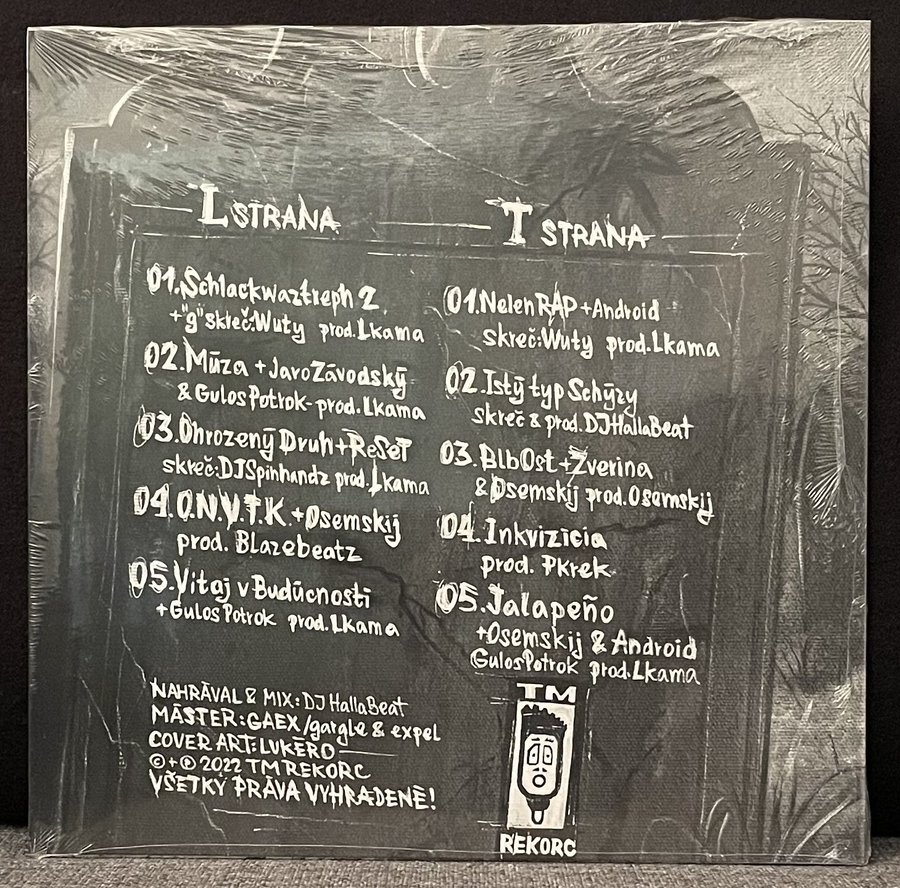 L STRANA
01. Schlackwaztreph 2
+ "g" skreč: Wuty prod. Lkama
02. Múza + Jaro Závodský
& Gulos Potrok - prod. Lkama
03. Ohrozený Druh + ReSeT
skreč: DJ Spinhandz prod. Lkama
04. O.N.V.T.K. + Osemskij
prod. Blazebeatz
05. Vitaj v Budúcnosti
+ Gulos Potrok prod. Lkama
T STRANA
01. Nelen RAP + Android
skreč: Wuty prod. Lkama
02. Istý typ Schýzy
skreč & prod. DJ HallaBeat
03. BlbOst + Zverina
& Osemskij prod. Osemskij
04. Inkvizícia
prod. PKrek
05. Jalapeño
+ Osemskij & Android
Gulos Potrok prod. Lkama
NAHRÁVAL & MIX: DJ HallaBeat
MÁSTER: GAEX / gargle & expel
COVER ART: LUKÉRO
© + ℗ 2022 TM REKORC
VŠETKÝ PRÁVA VYHRADENÉ!
TM
REKORC